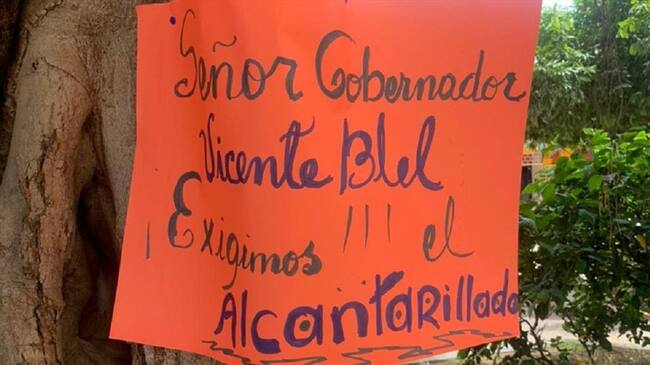 Señor Gobernador
Vicente Blel
¡Exigimos !!! el
Alcantarillado